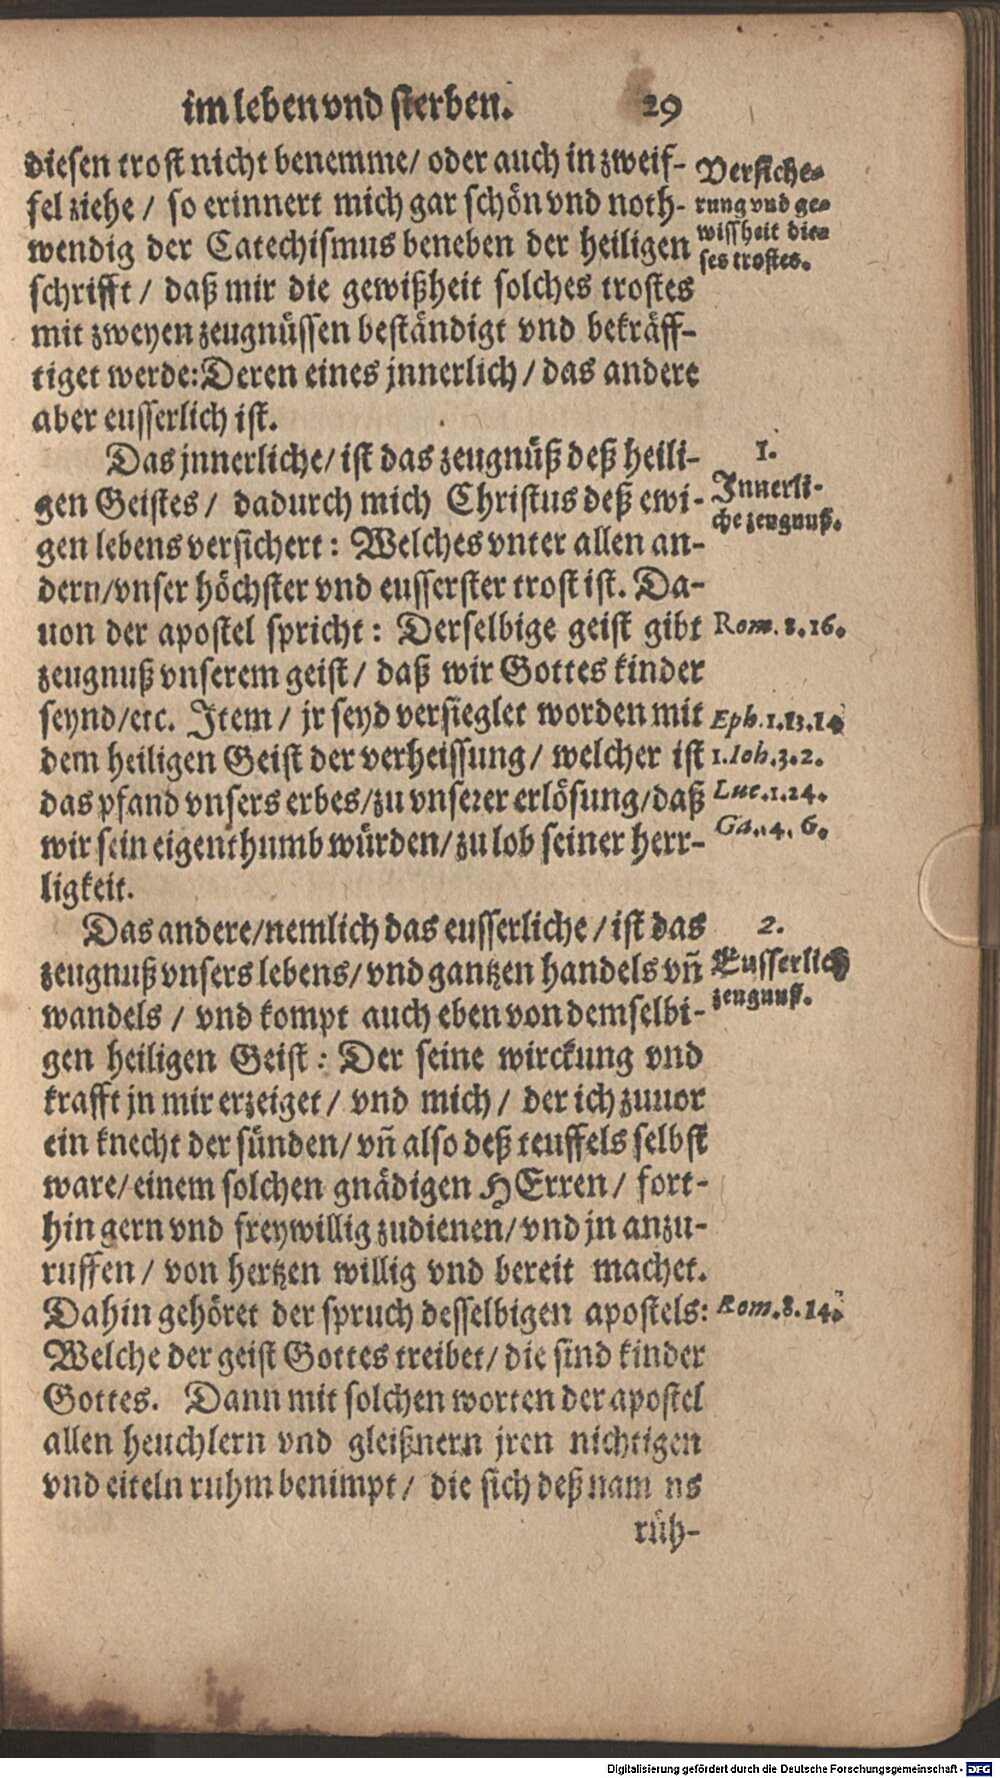 im leben vnd sterben. 29
diesen trost nicht benemme/ oder auch in zweif-
fel ziehe / so erinnert mich gar schön vnd noth-
wendig der Catechismus beneben der heiligen
schrifft / daß mir die gewißheit solches trostes
mit zweyen zeugnüssen beständigt vnd bekräff-
tiget werde: Deren eines jnnerlich / das andere
aber eusserlich ist.
Versiche-
rung vnd ge-
wissheit die-
ses trostes.
Das jnnerliche/ ist das zeugnüß deß heili-
gen Geistes / dadurch mich Christus deß ewi-
gen lebens versichert: Welches vnter allen an-
dern/vnser höchster vnd eusserster trost ist. Da-
uon der apostel spricht: Derselbige geist gibt
zeugnuß vnserem geist / daß wir Gottes kinder
seynd/etc. Item / jr seyd versieglet worden mit
dem heiligen Geist der verheissung / welcher ist
das pfand vnsers erbes/zu vnserer erlösung/daß
wir sein eigenthumb würden/ zu lob seiner herr-
ligkeit.
1.
Innerli-
che zeugnuß.
Rom. 8.16.
Eph.1.13.14
1.Ioh.3.2.
Luc.1.24.
Ga..4.6.
Das andere/nemlich das eusserliche / ist das
zeugnuß vnsers lebens/ vnd gantzen handels vñ
wandels / vnd kompt auch eben von demselbi-
gen heiligen Geist: Der seine wirckung vnd
krafft jn mir erzeiget / vnd mich / der ich zuuor
ein knecht der sünden/ vñ also deß teuffels selbst
ware/ einem solchen gnädigen HErren / fort-
hin gern vnd freywillig zudienen/ vnd jn anzu-
ruffen / von hertzen willig vnd bereit machet.
Dahin gehöret der spruch desselbigen apostels:
Welche der geist Gottes treibet/ die sind kinder
Gottes. Dann mit solchen worten der apostel
allen heuchlern vnd gleißnern jren nichtigen
vnd eiteln ruhm benimpt / die sich deß nam ns
2.
Eusserlich
zeugnuß.
Rom.8.14.
rüh-
Digitalisierung gefördert durch die Deutsche Forschungsgemeinschaft - DFG